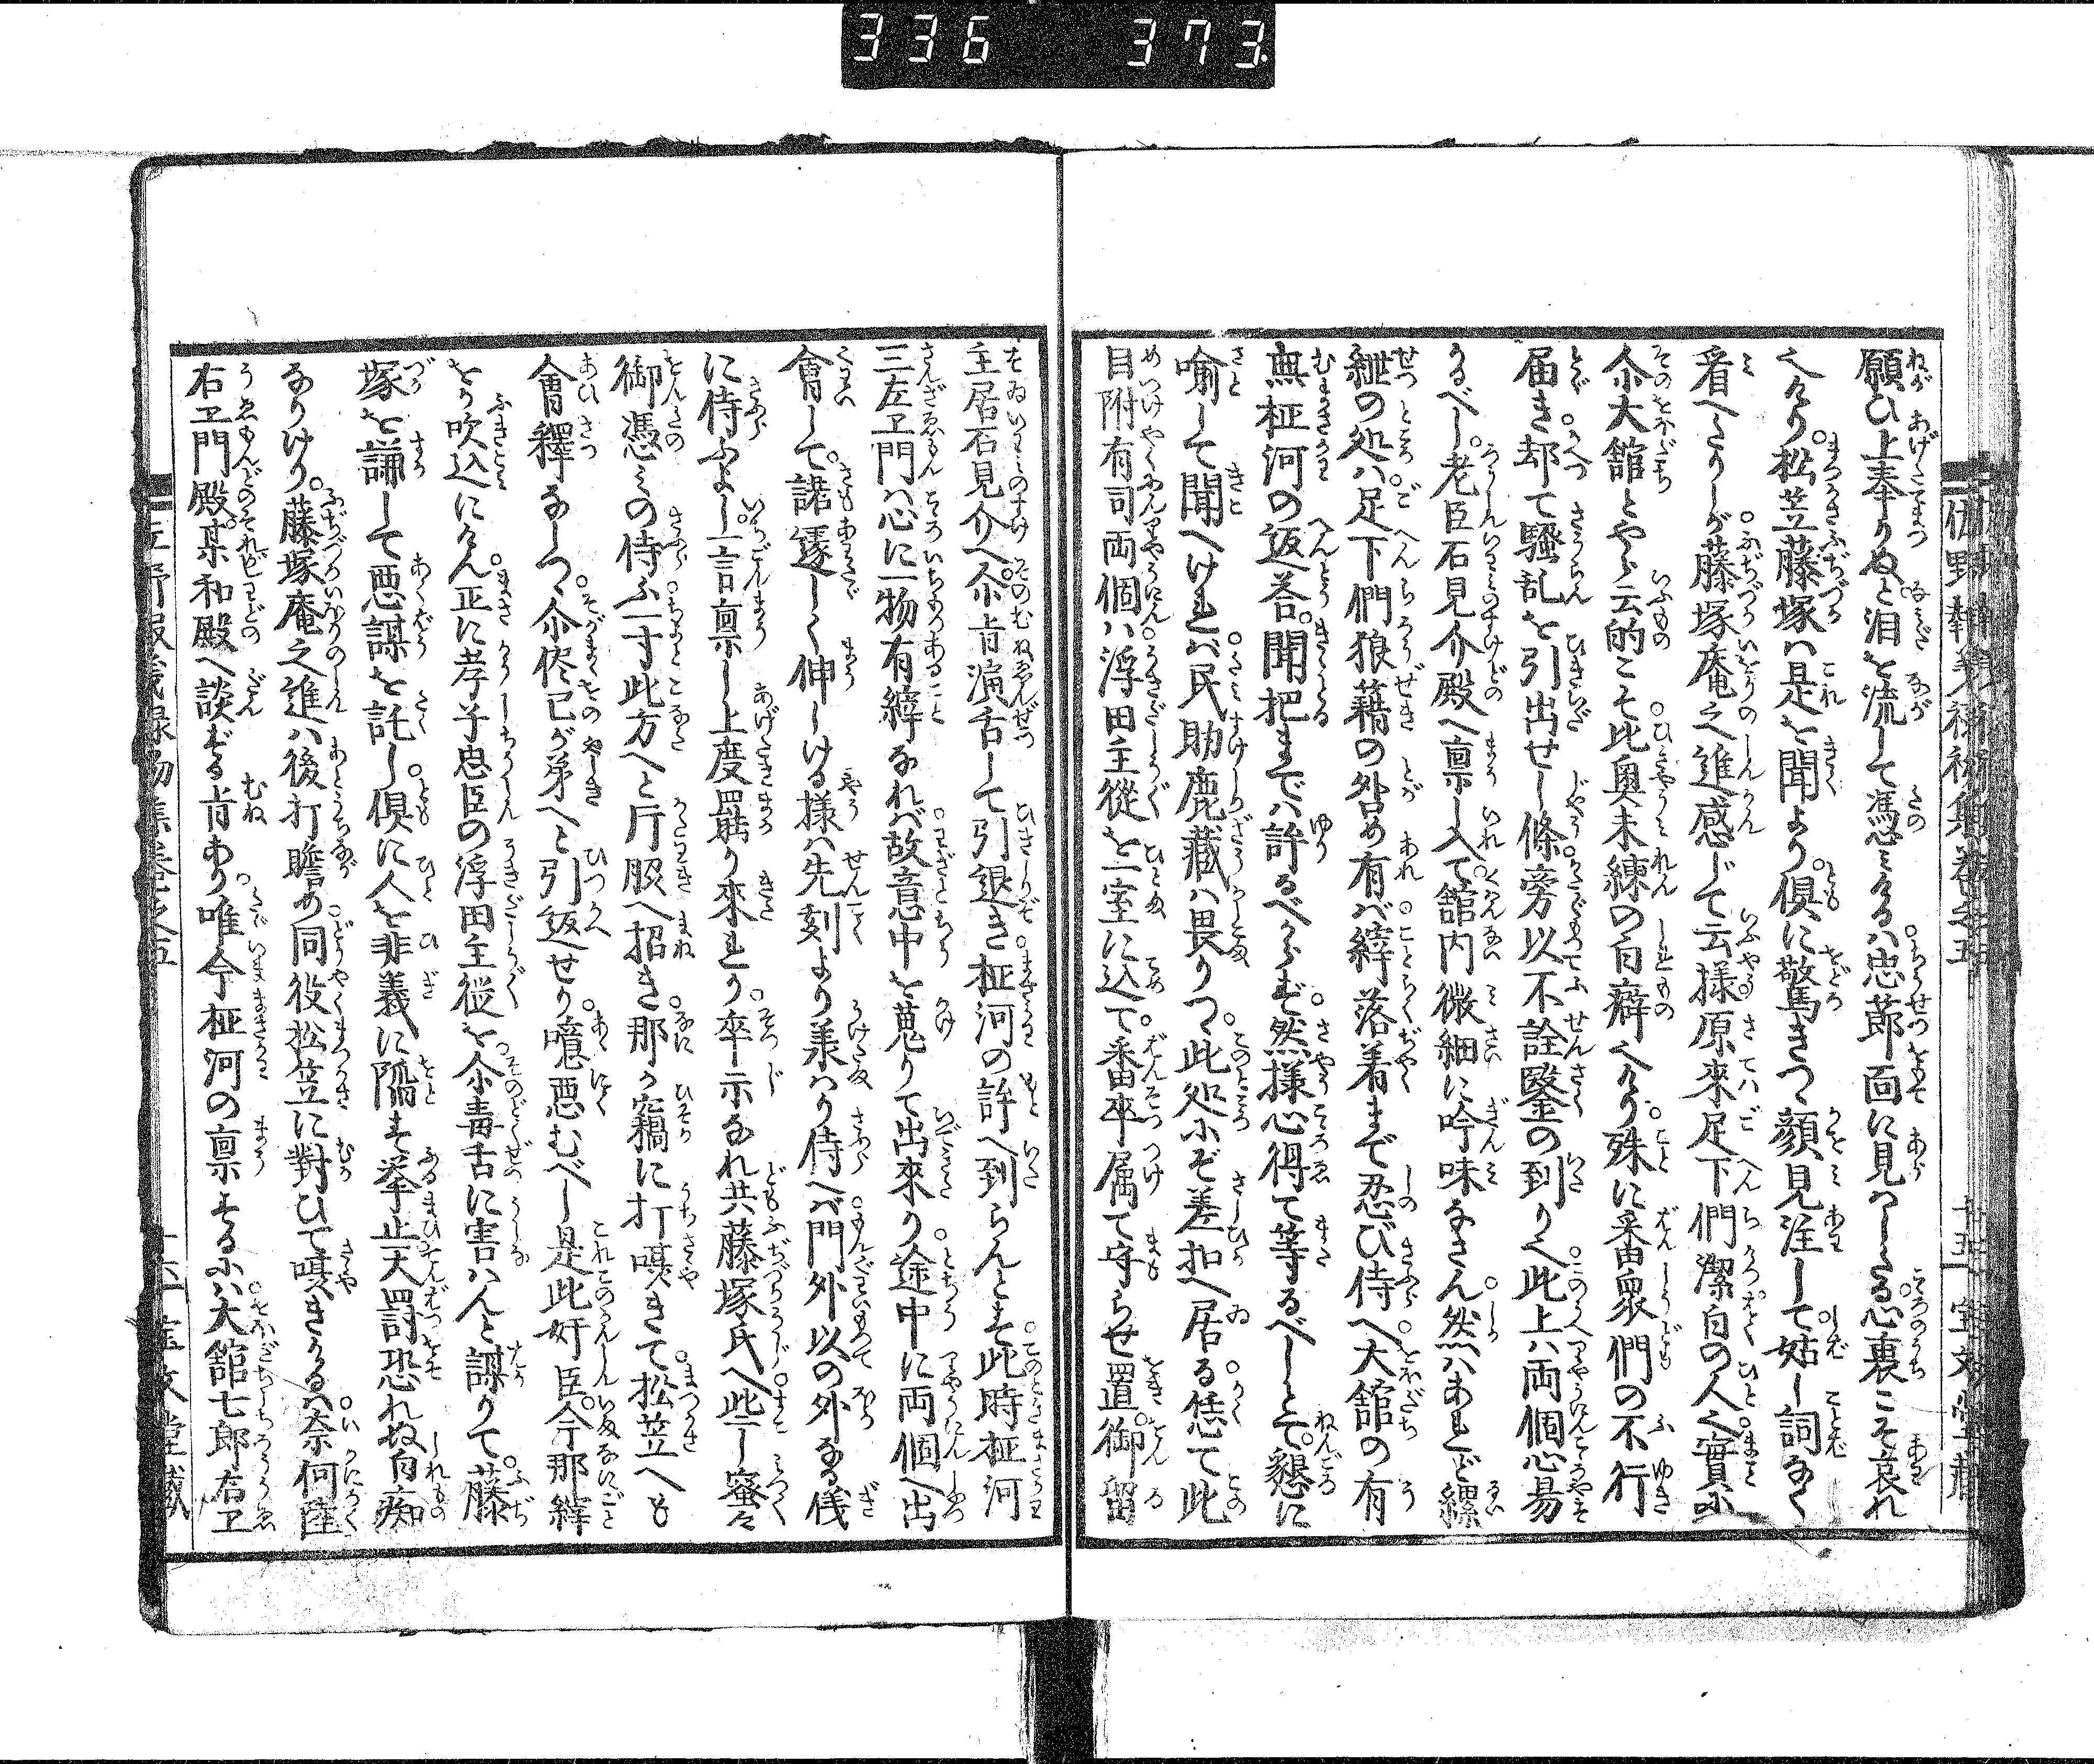 336 373
願ひ上奉りぬと泪を流して憑ミける忠節面に見ハしたる心裏こそ哀れ
へけり松笠藤塚ハ是を聞より俱に驚きつゝ顔見注して姑し詞なく
看へたりしが藤塚庵之進感じて云様原来足下們潔白の人々實ふ
尓大舘とやら云的こそ此奥未練の白癖へけり殊に番衆們の不行
届き却て騒乱を引出せし條旁以不詮鑿の到りへ此上ハ両個心易
かるべし老臣石見介殿へ禀し入て舘内微細に吟味なさん然ハあれど縲
紲の処ハ足下們狼藉の咎め有ば縡落着まで忍び侍へ大舘の有
無柾河の返荅聞把までハ許るべからず然様心得て等るべしとて懇に
喩して聞へけれバ民助鹿蔵ハ畏りつゝ此処ふぞ差扣へ居る恁て此
目附有司両個ハ浮田主從を一室に込て番卒属て守らせ置御留
主居石見介へ尓肯演舌して引退き柾河の許へ到らんとす此時柾河
三左ヱ門ハ心に一物有縡なれば故意中を蒐りて出來り途中に両個へ出
會して諸遜しく伸しける様ハ先刻より羕ハり侍へバ門外以の外なる儀
に侍ふよし一言禀し上度罷り來れり卒示なれ共藤塚氏へ些ーし蜜々
御憑ミの侍ふ一寸此方へと片股へ招き那か竊に打囁きて松笠へも
會釋なしつゝ尓侭己が弟へと引返せり噫悪むべし是此奸臣今那縡
をか吹込にけん正に孝子忠臣の浮田主從を尓毒舌に害ハんと謀りて藤
塚を誦して悪謀を託し俱に人を非義に陥す挙止天罰恐れぬ白痴
なりけり藤塚庵之進ハ後打瞻め同役松笠に對ひて囁きける奈何陸
右ヱ門殿某和殿へ談ずる肯あり唯今柾河の禀するふハ大舘七郎右ヱ